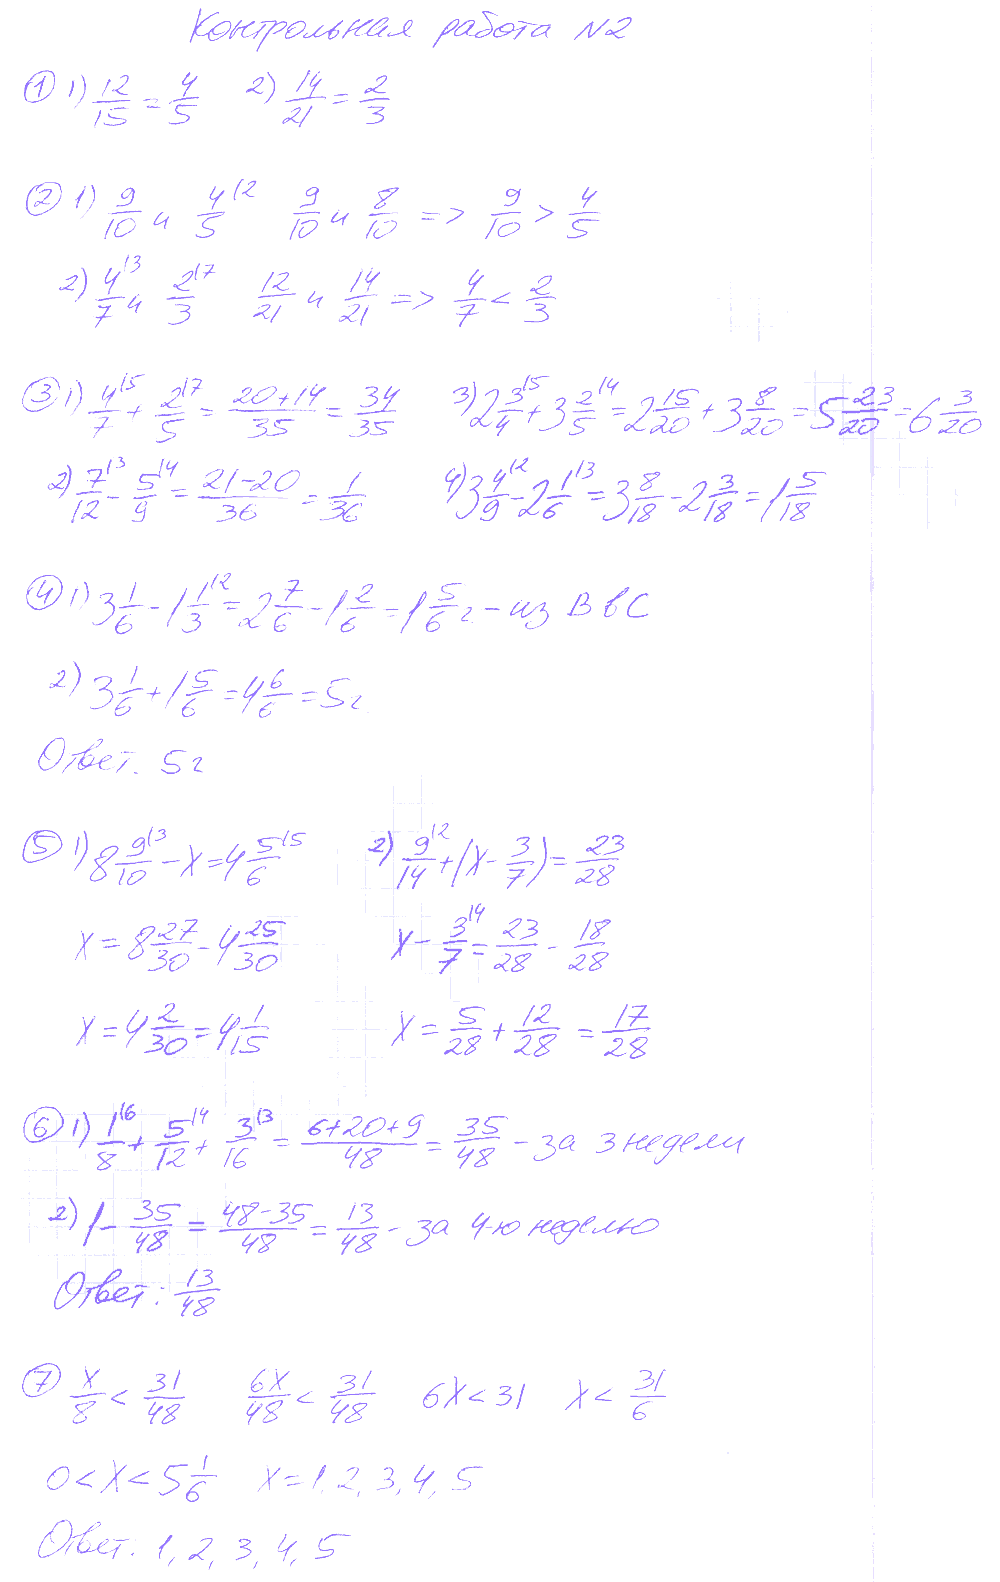 Контрольная работа №2
① 1) 12/15 = 4/5 2) 14/21 = 2/3
② 1) 9/10 и 4/5^(2 9/10 и 8/10 => 9/10 > 4/5
2) 4/7^(3 и 2/3^(7 12/21 и 14/21 => 4/7 < 2/3
③ 1) 4/7^(5 + 2/5^(7 = (20+14)/35 = 34/35 3) 2 3/4^(5 + 3 2/5^(4 = 2 15/20 + 3 8/20 = 5 23/20 = 6 3/20
2) 7/12^(3 - 5/9^(4 = (21-20)/36 = 1/36 4) 3 4/9^(2 - 2 1/6^(3 = 3 8/18 - 2 3/18 = 1 5/18
④ 1) 3 1/6 - 1 1/3^(2 = 2 7/6 - 1 2/6 = 1 5/6 г - из В в С
2) 3 1/6 + 1 5/6 = 4 6/6 = 5 г.
Ответ. 5 г
⑤ 1) 8 9/10^(3 - x = 4 5/6^(5 2) 9/14^(2 + (x - 3/7) = 23/28
x = 8 27/30 - 4 25/30 x - 3/7^(4 = 23/28 - 18/28
x = 4 2/30 = 4 1/15 x = 5/28 + 12/28 = 17/28
⑥ 1) 1/8^(6 + 5/12^(4 + 3/16^(3 = (6+20+9)/48 = 35/48 - за 3 недели
2) 1 - 35/48 = (48-35)/48 = 13/48 - за 4-ю неделю
Ответ: 13/48
⑦ x/8 < 31/48 6x/48 < 31/48 6x < 31 x < 31/6
0 < x < 5 1/6 x = 1, 2, 3, 4, 5
Ответ. 1, 2, 3, 4, 5